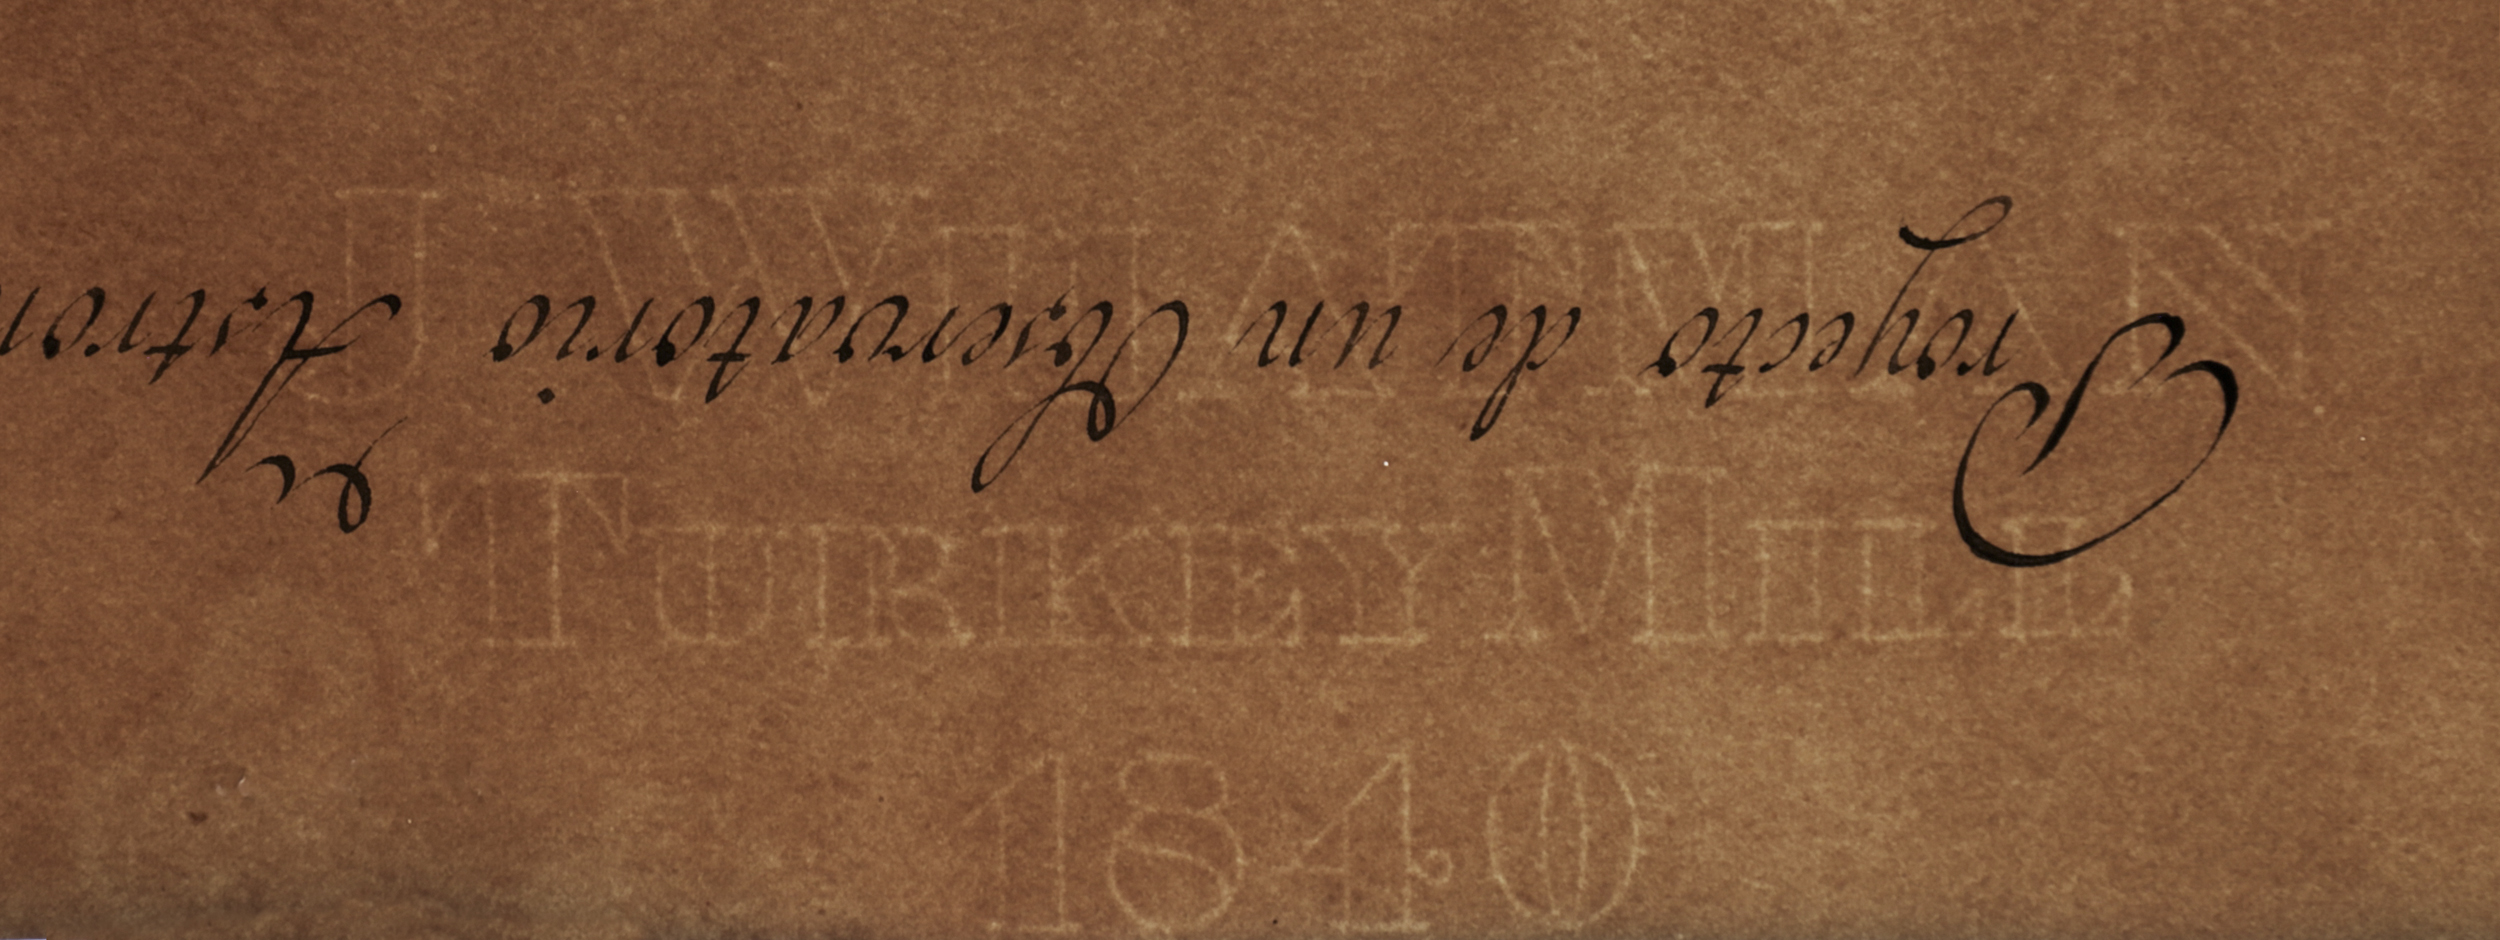 Proyecto de un Observatorio Astron
J WHATMAN
TURKEY MILL
1840